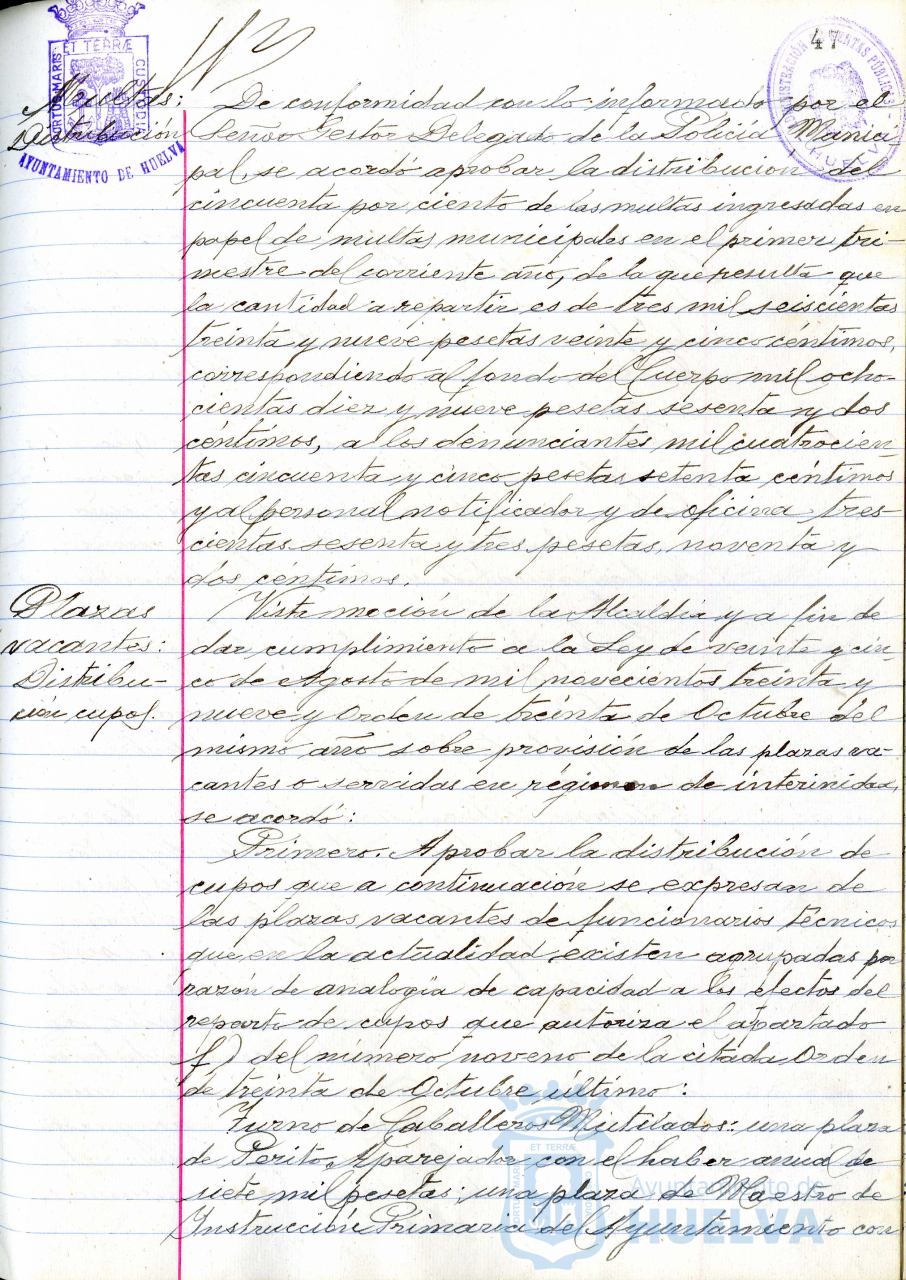 47
ET TERRÆ
PORTUS MARIS
CUSTODIA
AYUNTAMIENTO DE HUELVA
ADMINISTRACIÓN RENTAS PÚBLICAS
HUELVA
Multas:
Distribución
De conformidad con lo informado por el
Señor Gestor Delegado de la Policía Munici-
pal, se acordó aprobar la distribución del
cincuenta por ciento de las multas ingresadas en
papel de multas municipales en el primer tri-
mestre del corriente año, de la que resulta que
la cantidad a repartir es de tres mil seiscientas
treinta y nueve pesetas veinte y cinco céntimos,
correspondiendo al fondo del Cuerpo mil ocho-
cientas diez y nueve pesetas sesenta y dos
céntimos, a los denunciantes mil cuatrocien-
tas cincuenta y cinco pesetas setenta céntimos
y al personal notificador y de oficina tres-
cientas sesenta y tres pesetas, noventa y
dos céntimos.
Plazas
vacantes:
Distribu-
ción cupos.
Vista moción de la Alcaldía y a fin de
dar cumplimiento a la Ley de veinte y cin-
co de Agosto de mil novecientos treinta y
nueve y Orden de treinta de Octubre del
mismo año sobre provisión de las plazas va-
cantes o servidas en régimen de interinidad,
se acordó:
Primero. Aprobar la distribución de
cupos que a continuación se expresan de
las plazas vacantes de funcionarios técnicos
que en la actualidad existen agrupadas por
razón de analogía de capacidad a los efectos del
reparto de cupos que autoriza el apartado
f) del número noveno de la citada Orden
de treinta de Octubre último:
Turno de Caballeros Mutilados: una plaza
de Perito Aparejador con el haber anual de
siete mil pesetas; una plaza de Maestro de
Instrucción Primaria del Ayuntamiento con
ET TERRÆ
Ayuntamiento de
HUELVA